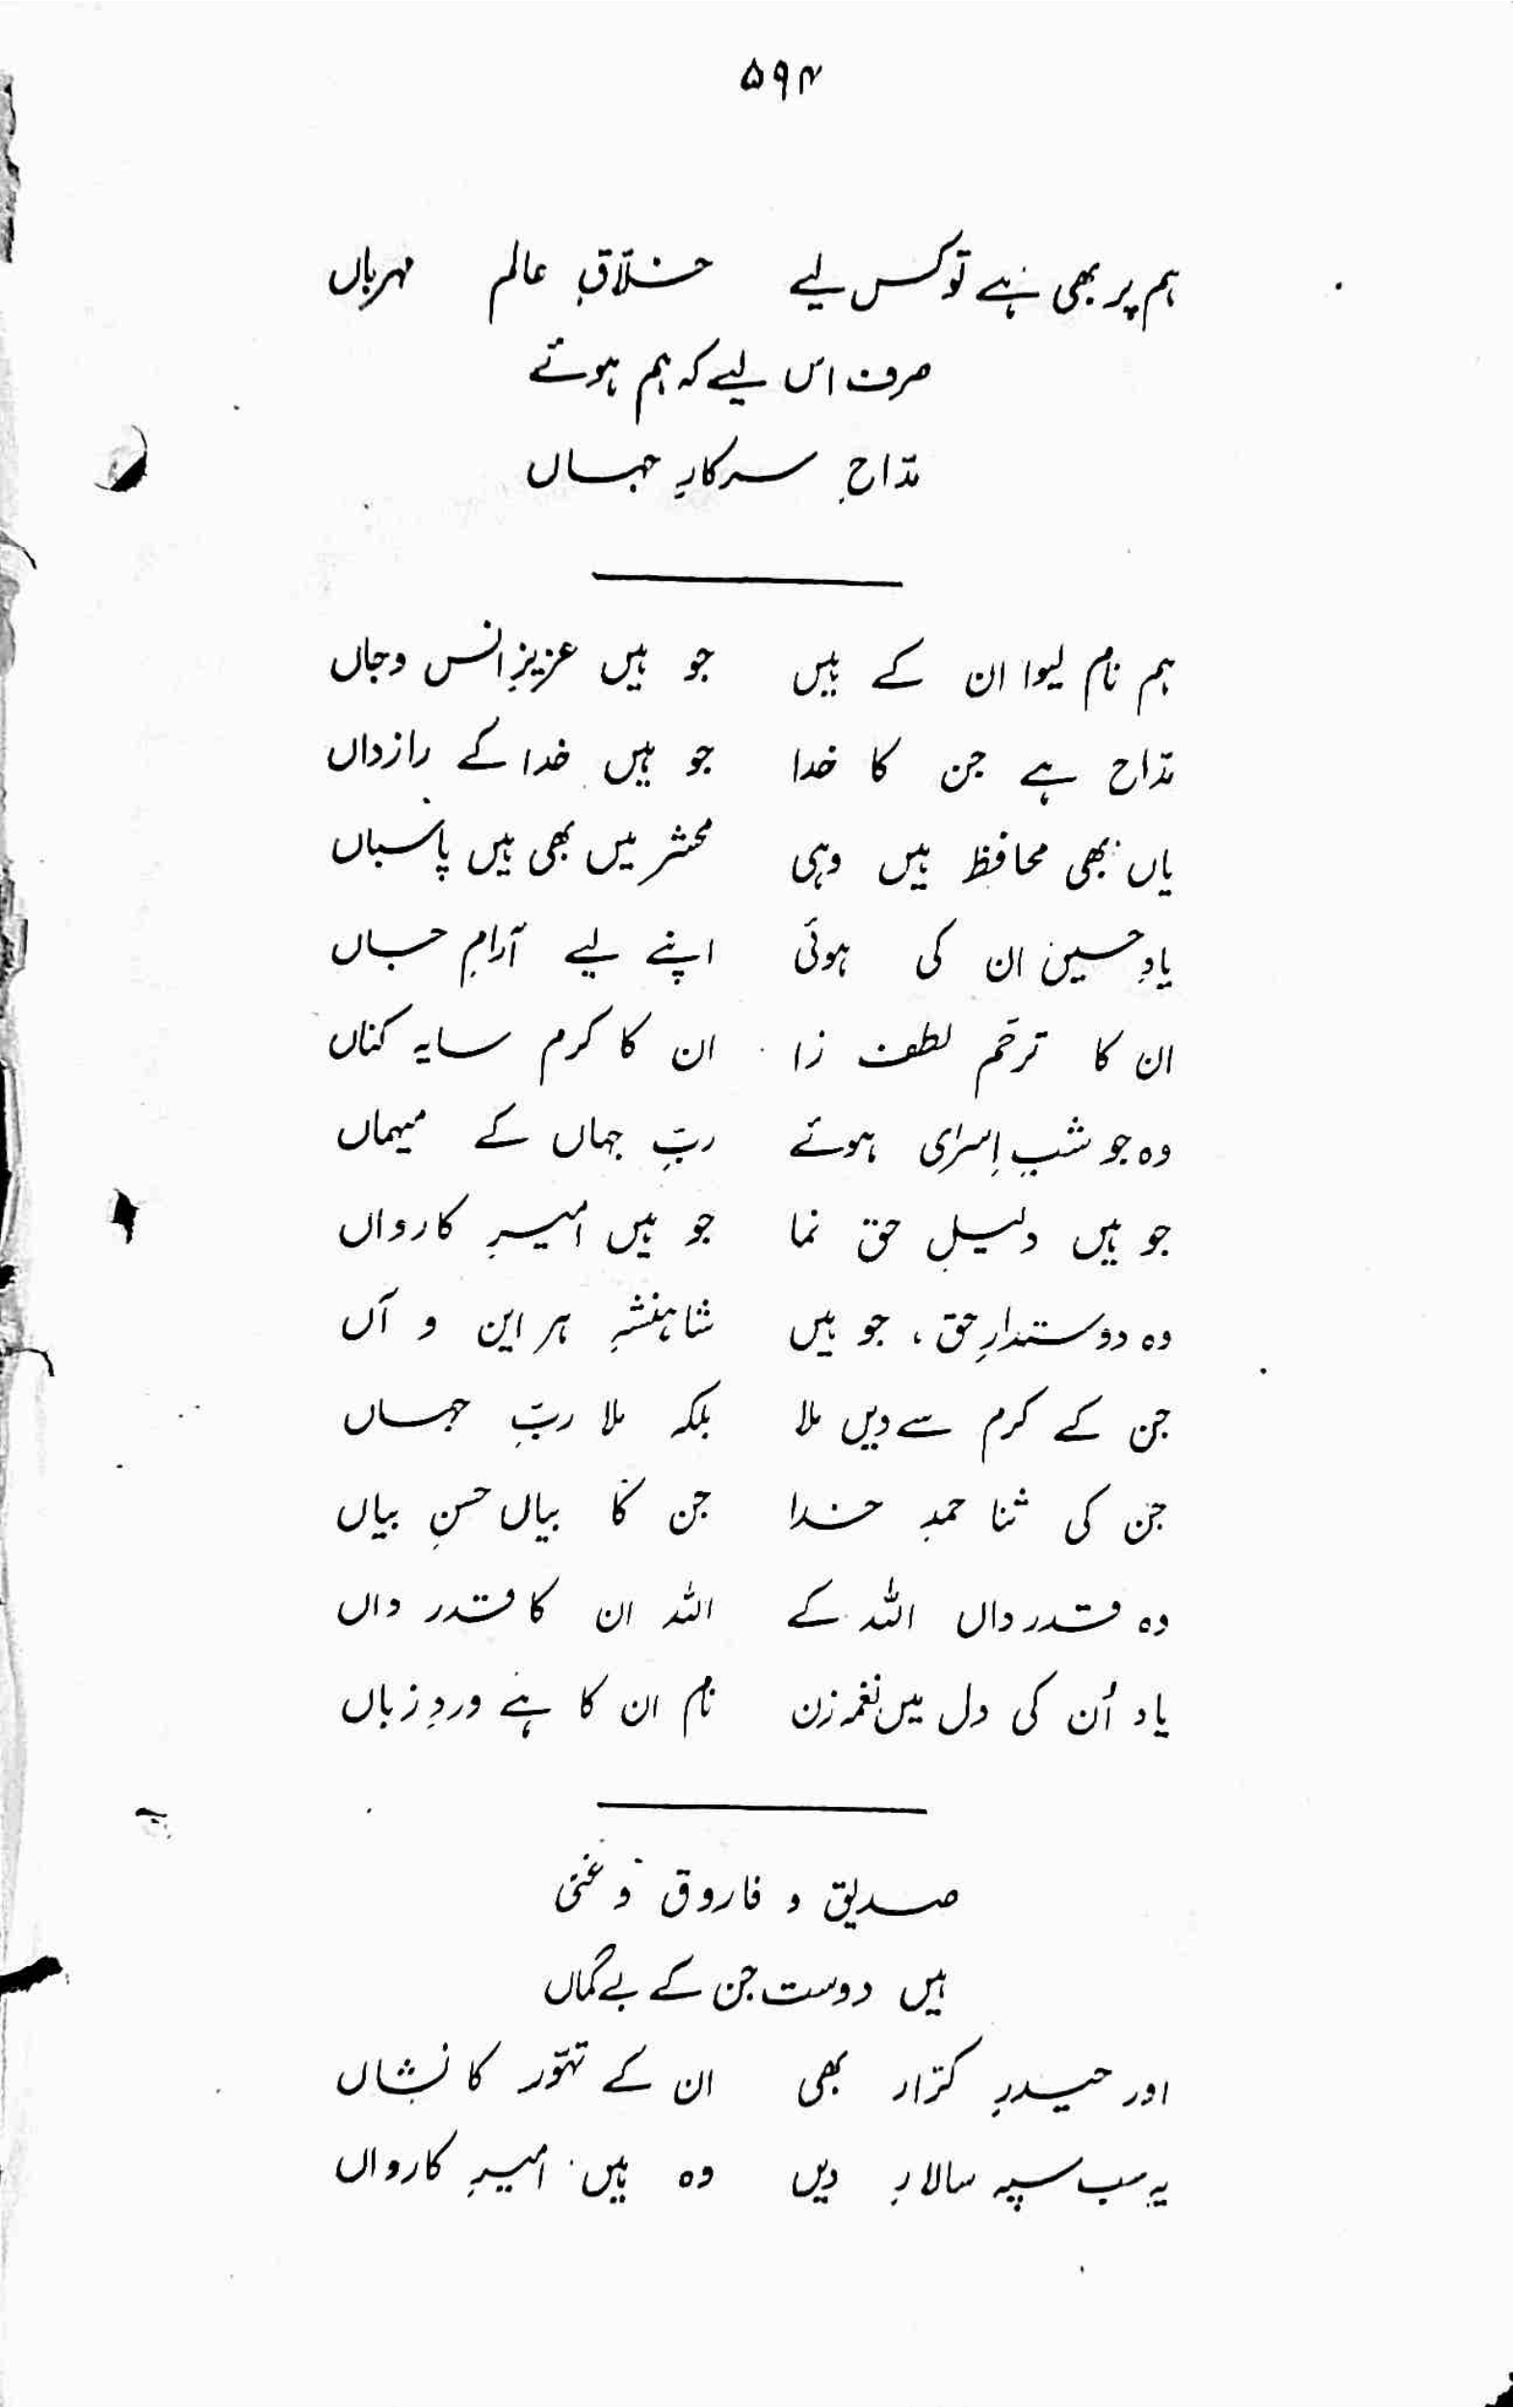 ۵۹۴
ہم پر بھی ہے تو کس لیے خلاّقِ عالم مہرباں
صرف اس لیے کہ ہم ہوئے
مدّاحِ سرکارِ جہاں
ہم نام لیوا ان کے ہیں جو ہیں عزیزِ انس و جاں
مدّاح ہے جن کا خدا جو ہیں خدا کے رازداں
یاں بھی محافظ ہیں وہی محشر میں بھی ہیں پاسباں
یادِ حسین ان کی ہوئی اپنے لیے آرامِ جاں
ان کا ترحّم لطف زا ان کا کرم سایہ کناں
وہ جو شبِ اِسرٰی ہوئے ربِّ جہاں کے میہماں
جو ہیں دلیلِ حق نما جو ہیں امیرِ کارواں
وہ دوستدارِ حق، جو ہیں شاہنشہِ ہر این و آں
جن کے کرم سے دیں ملا بلکہ ملا ربِّ جہاں
جن کی ثنا حمدِ خدا جن کا بیاں حسنِ بیاں
وہ قدر داں اللہ کے اللہ ان کا قدر داں
یاد اُن کی دل میں نغمہ زن نام ان کا ہے وردِ زباں
صدیق و فاروق و غنی
ہیں دوست جن کے بے گماں
اور حیدرِ کرّار بھی ان کے تہوّر کا نشاں
یہ سب سپہ سالارِ دیں وہ ہیں امیرِ کارواں